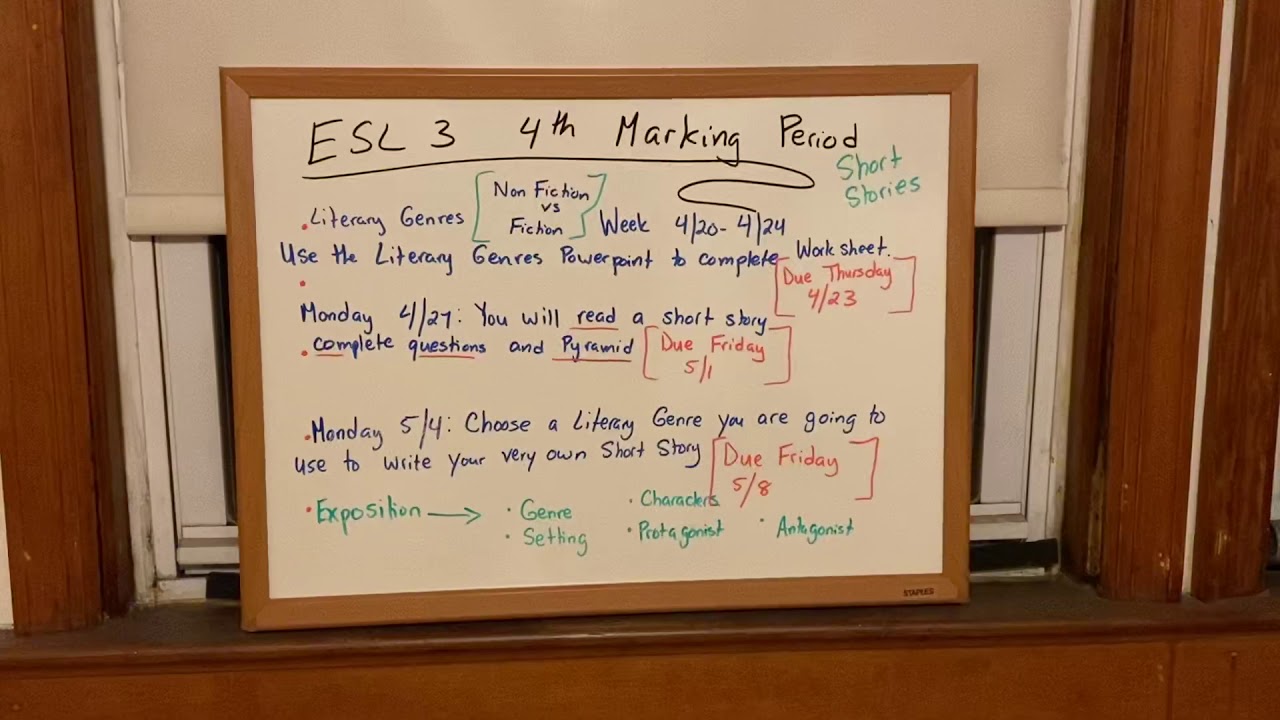 ESL 3 4th Marking Period
Short
Stories
Non Fiction
vs
Fiction
. Literary Genres
Week 4/20 - 4/24
Use the Literary Genres Powerpoint to complete Worksheet.
Due Thursday
4/23
Monday 4/27: You will read a short story
. complete questions and Pyramid
Due Friday
5/1
. Monday 5/4: Choose a Literary Genre you are going to
use to write your very own Short Story
Due Friday
5/8
. Exposition → · Genre
· Setting
· Characters
· Protagonist
· Antagonist
STAPLES